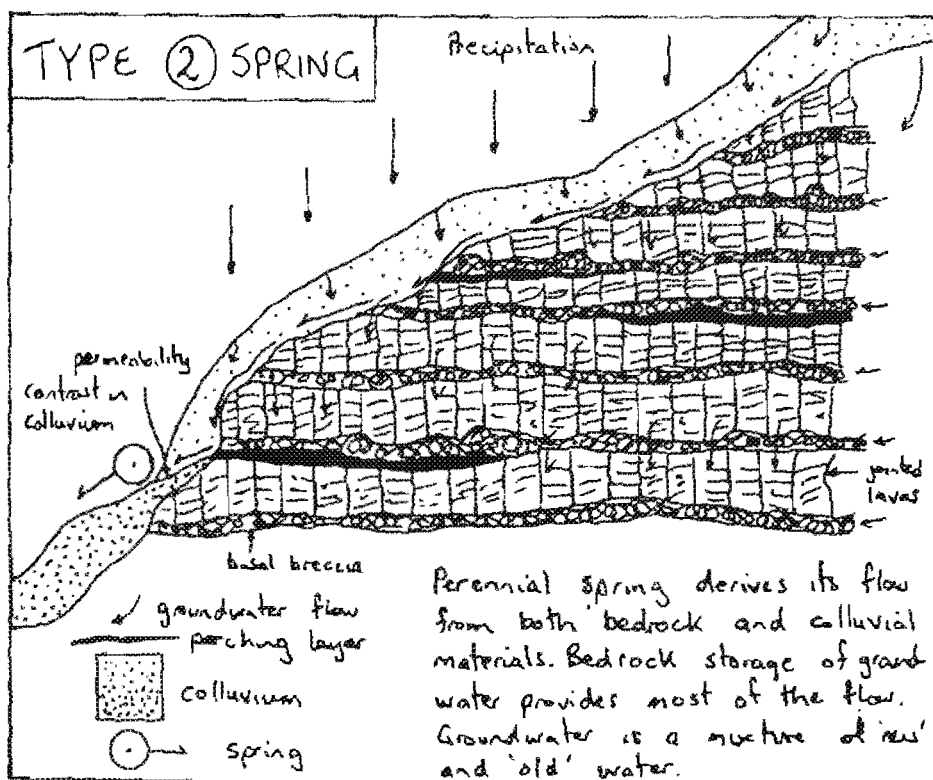 TYPE 2 SPRING
Precipitation
permeability
contrast in
colluvium
jointed
lavas
basal breccia
groundwater flow
perching layer
colluvium
spring
Perennial spring derives its flow
from both bedrock and colluvial
materials. Bedrock storage of ground
water provides most of the flow.
Groundwater is a mixture of 'new'
and 'old' water.